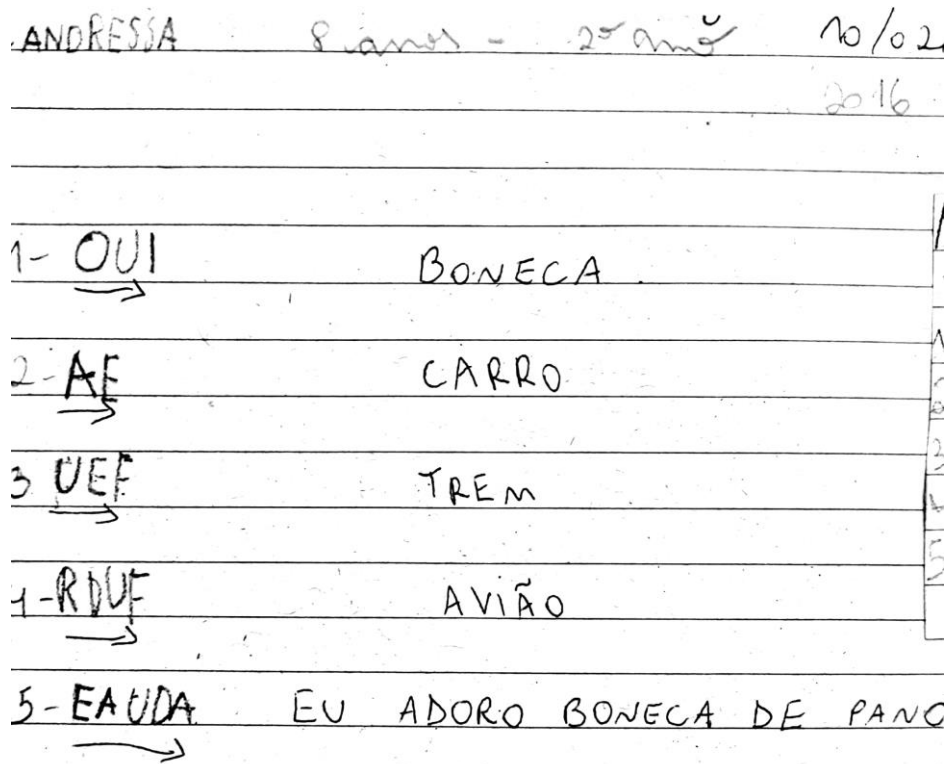 ANDRESSA 8 anos - 2º ano 10/02
2016
1- OUI BONECA.
2- AE CARRO
3 UEF TREM
4- RDUF AVIÃO
5- EAUDA EU ADORO BONECA DE PANO